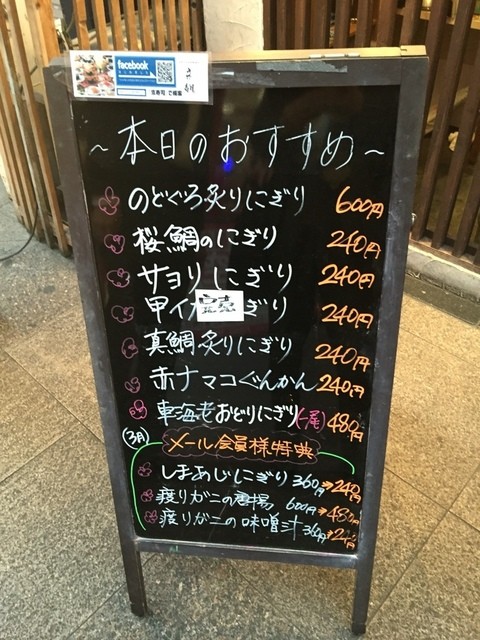 facebook
~本日のおすすめ~
のどぐろ炙りにぎり 600円
桜鯛のにぎり 240円
サヨリにぎり 240円
甲イカ 完売 ぎり 240円
真鯛炙りにぎり 240円
赤ナマコぐんかん 240円
車海老おどりにぎり(一尾) 480円
(3月) メール会員様特典
しまあじにぎり 360円→240円
渡りガニの唐揚 600円→480円
渡りガニの味噌汁 360円→240円